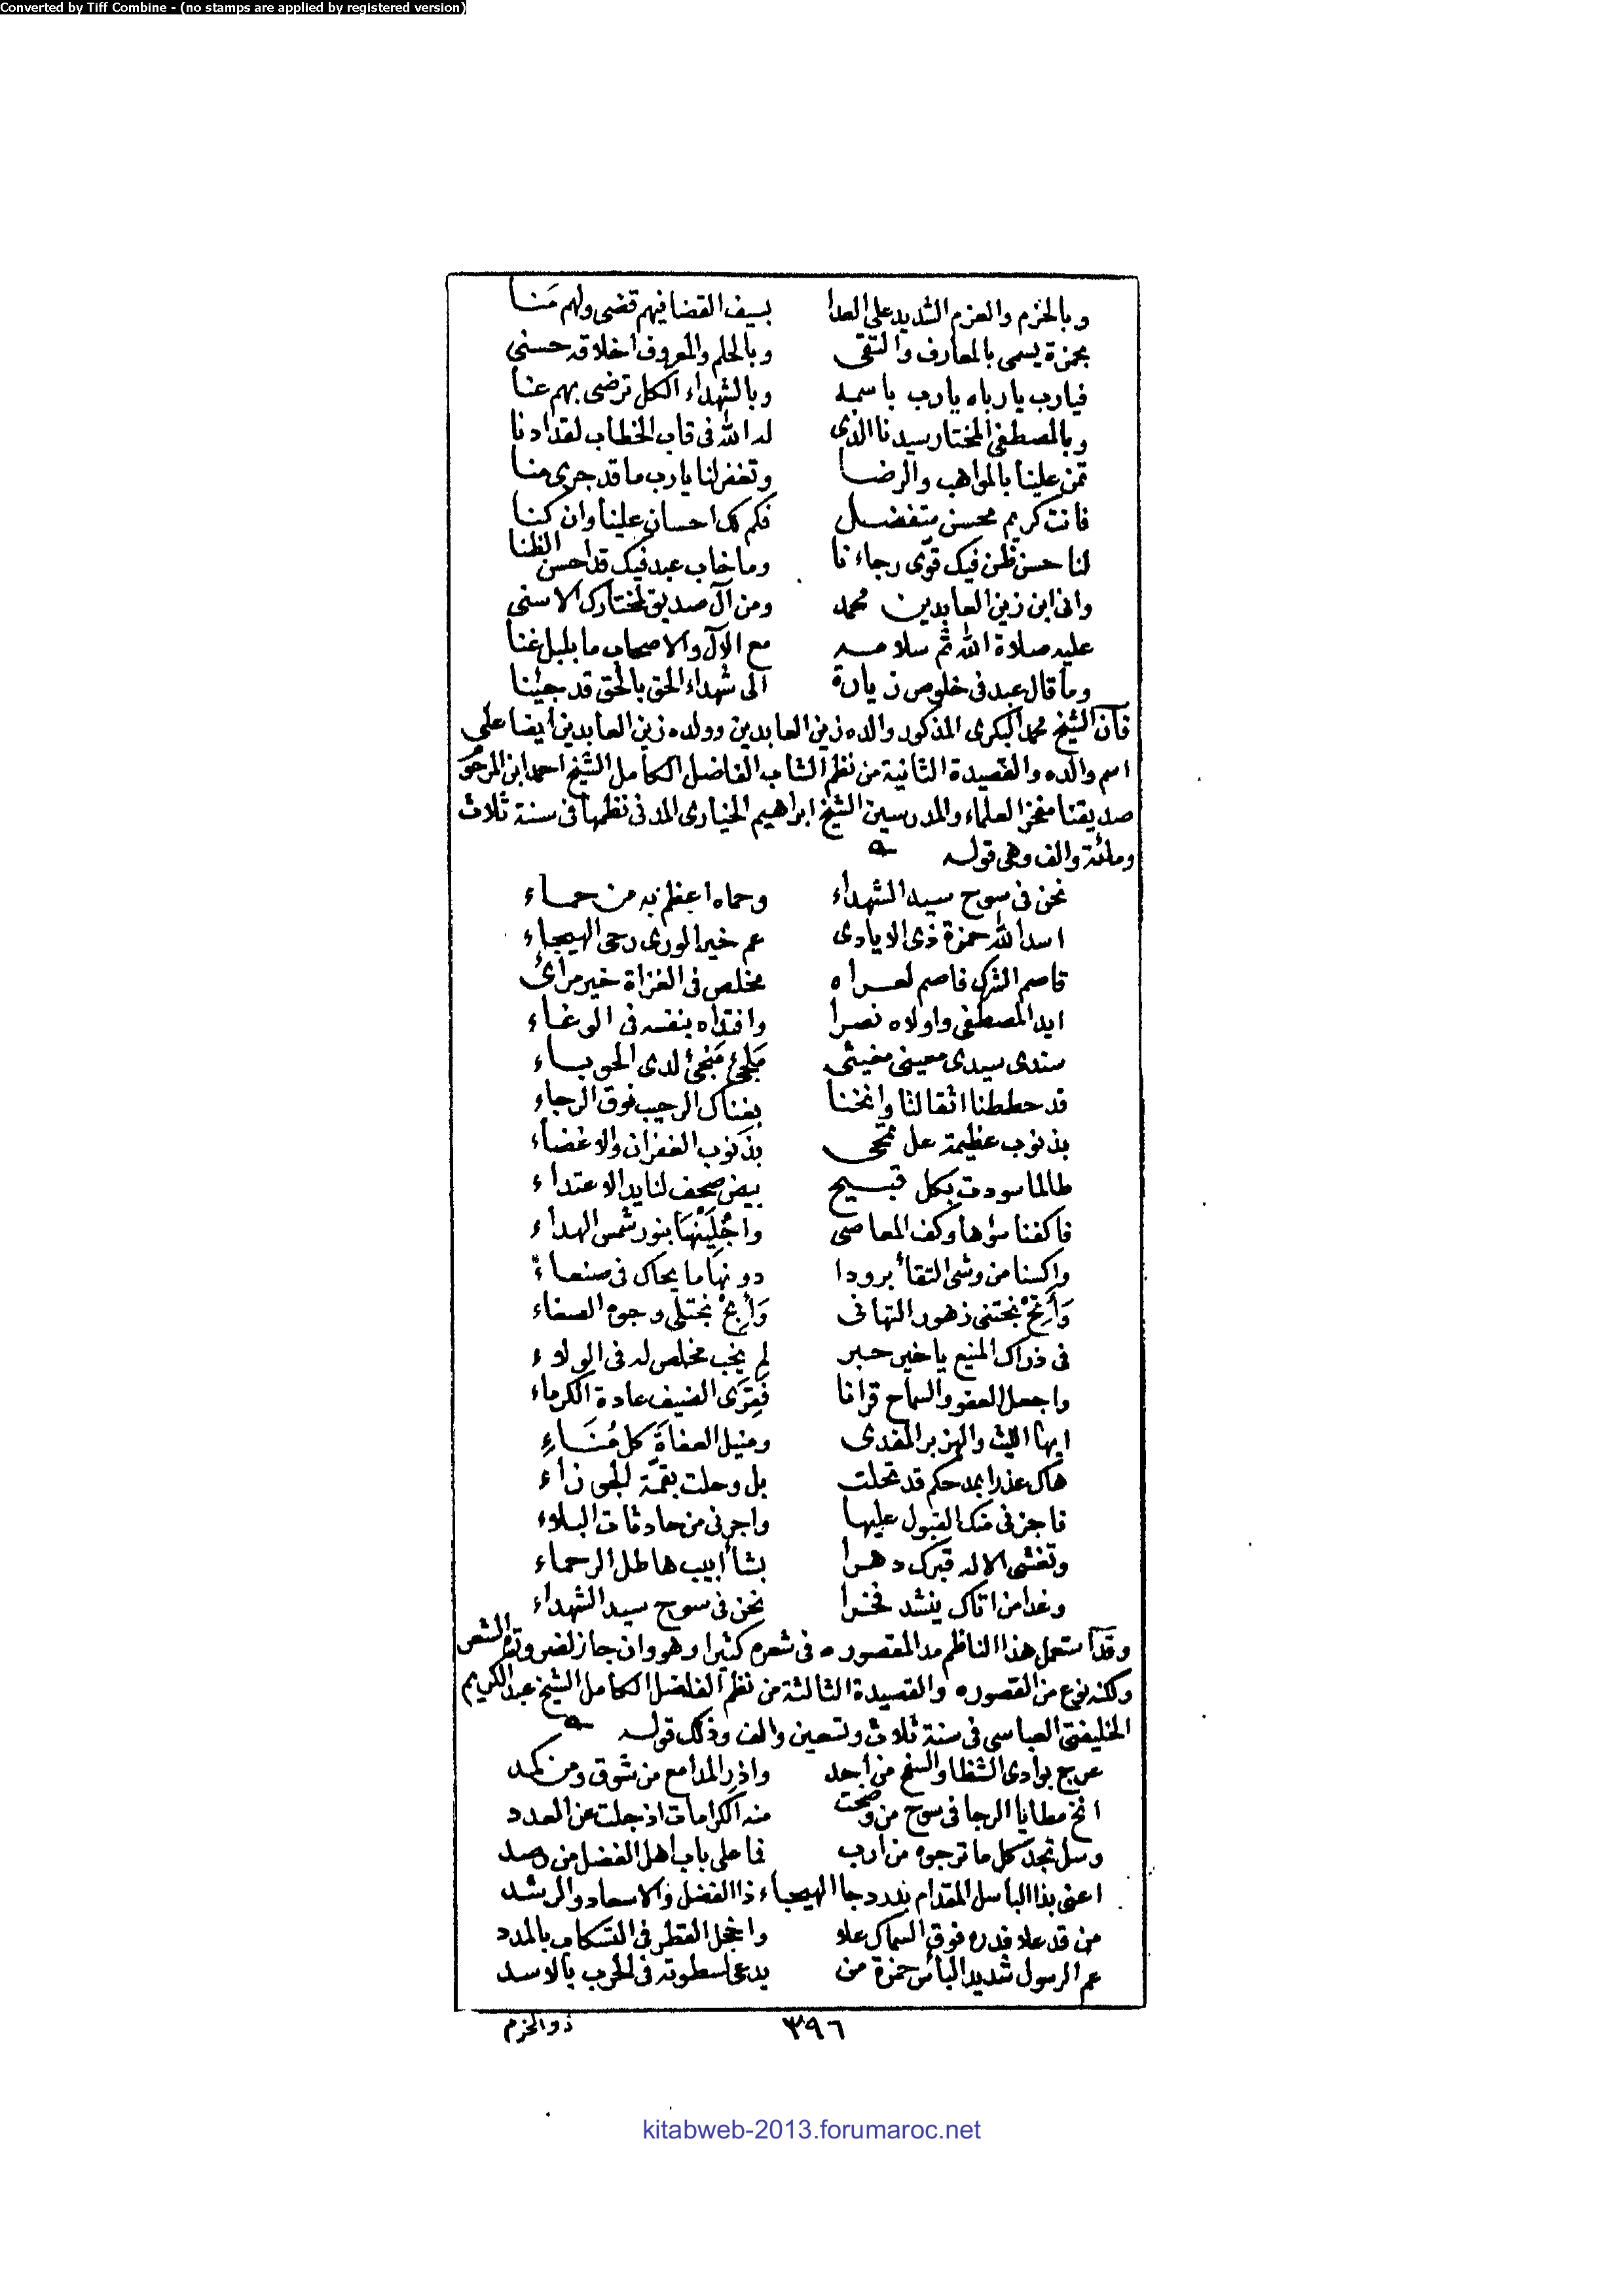 Converted by Tiff Combine - (no stamps are applied by registered version)
وبالحزم والعزم الشديد على العدا بسيف القضا فيهم قضى ولهم مَنا
بحمزة يسمى بالمعارف والتقى وبالحلم والمعروف اخلاقه حسنى
فيارب يارباه يارب باسمه وبالشهداء الكل ترضى بهم عنا
وبالمصطفى المختار سيدنا الذى له الله فى قاب الخطاب لقد ادنا
تمن علينا بالمواهب والرضا وتغفر لنا يارب ما قد جرى منا
فانت كريم محسن متفضل فكم لك احسان علينا وان كنا
لنا حسن ظن فيك قوّى رجاءنا وما خاب عبد فيك قد احسن الظنا
وانى ابن زين العابدين محمد ومن آل صديق لمختارك الاسنى
عليه صلاة الله ثم سلامه مع الآل والاصحاب ما بلبل غنا
وما قال عبد فى خلوص زيارة الى شهداء الحق بالحق قد جئنا
فآن الشيخ محمد البكرى المذكور والده زين العابدين وولده زين العابدين أيضا على
اسم والده والقصيدة الثانية من نظم الشاب الفاضل الكامل الشيخ احمد ابن المرحوم
صديقنا مفخر العلماء والمدرسين الشيخ ابراهيم الخيارى المدنى نظمها فى سنة ثلاث
ومائة والف وهى قوله
نحن فى سوح سيد الشهداء وحماه اعظم به من حماء
اسد الله حمزة ذى الايادى عم خير الورى رحى الهيجاء
قاصم الشرك فاصم لعراه مخلص فى الغزاة خير مرائ
ايد المصطفى واولاه نصرا وافتداه بنفسه فى الوغاء
سندى سيدى معينى مغيثى مَلجئ مَنجئ لدى الحوباء
قد حططنا اثقالنا وانخنا بفناك الرحيب فوق الرجاء
بذنوب عظيمة عل تمحى بذَنوب الغفران والاغضاء
طالما سودت بكل قبيح بيض صحف لنا يد الاعتداء
فاكفنا سؤها وكف المعاصى واجْلِيَنْهَا بنور شمس الهداء
واكسنا من وشى التقاء برودا دونها ما يحاك فى صنعاء
وَأَرِحْ نجتنى زهور التهانى وَأَرِحْ نجتلى وجوه الصفاء
فى ذراك المنيع يا خير حبر لم يخب مخلص له فى الولاء
واجعل العفو والسماح قرانا فَقِرَى الضيف عادة الكرماء
ايها الليث والهزبر المفدى ومنيل العفاة كل مُنَاءِ
هاك عذرا بمدحكم قد تحلت بل وحلت بقمّة الجوزاء
فاجزنى منك القبول عليها واجرنى من حادثات البلاء
وتغشى الاله قبرك دهرا بشأابيب هاطل الرحماء
وغدا من اتاك ينشد فخرا نحن فى سوح سيد الشهداء
وقد استعمل هذا الناظم مد المقصوره فى شعره كثيرا وهو وان جاز لضرورة الشعر
ولكنه نوع من القصوره والقصيدة الثالثة من نظم الفاضل الكامل الشيخ عبد الكريم
الخليفتى العباسى فى سنة ثلاث وتسعين والف وذلك قوله
عرج بوادى الشظا والسفح من أحد واذر المدامع من شوق ومن كمد
انخ مطايا الرجا فى سوح من وضحت منه الكرامات اذ جلت عن العدد
وسل تجد كل ما ترجوه من ارب فما على باب اهل الفضل من وصد
اعنى بذا الباسل المقدام بدر دجا الهيجاء ذا الفضل والاسعاد والرشد
من قد علا قدره فوق السماك علا واخجل القطر فى التسكاب بالمدد
عم الرسول شديد البأس حمزة من يدعى لسطوته فى الحرب بالاسد
٣٩٦
ذو الحزم
kitabweb-2013.forumaroc.net